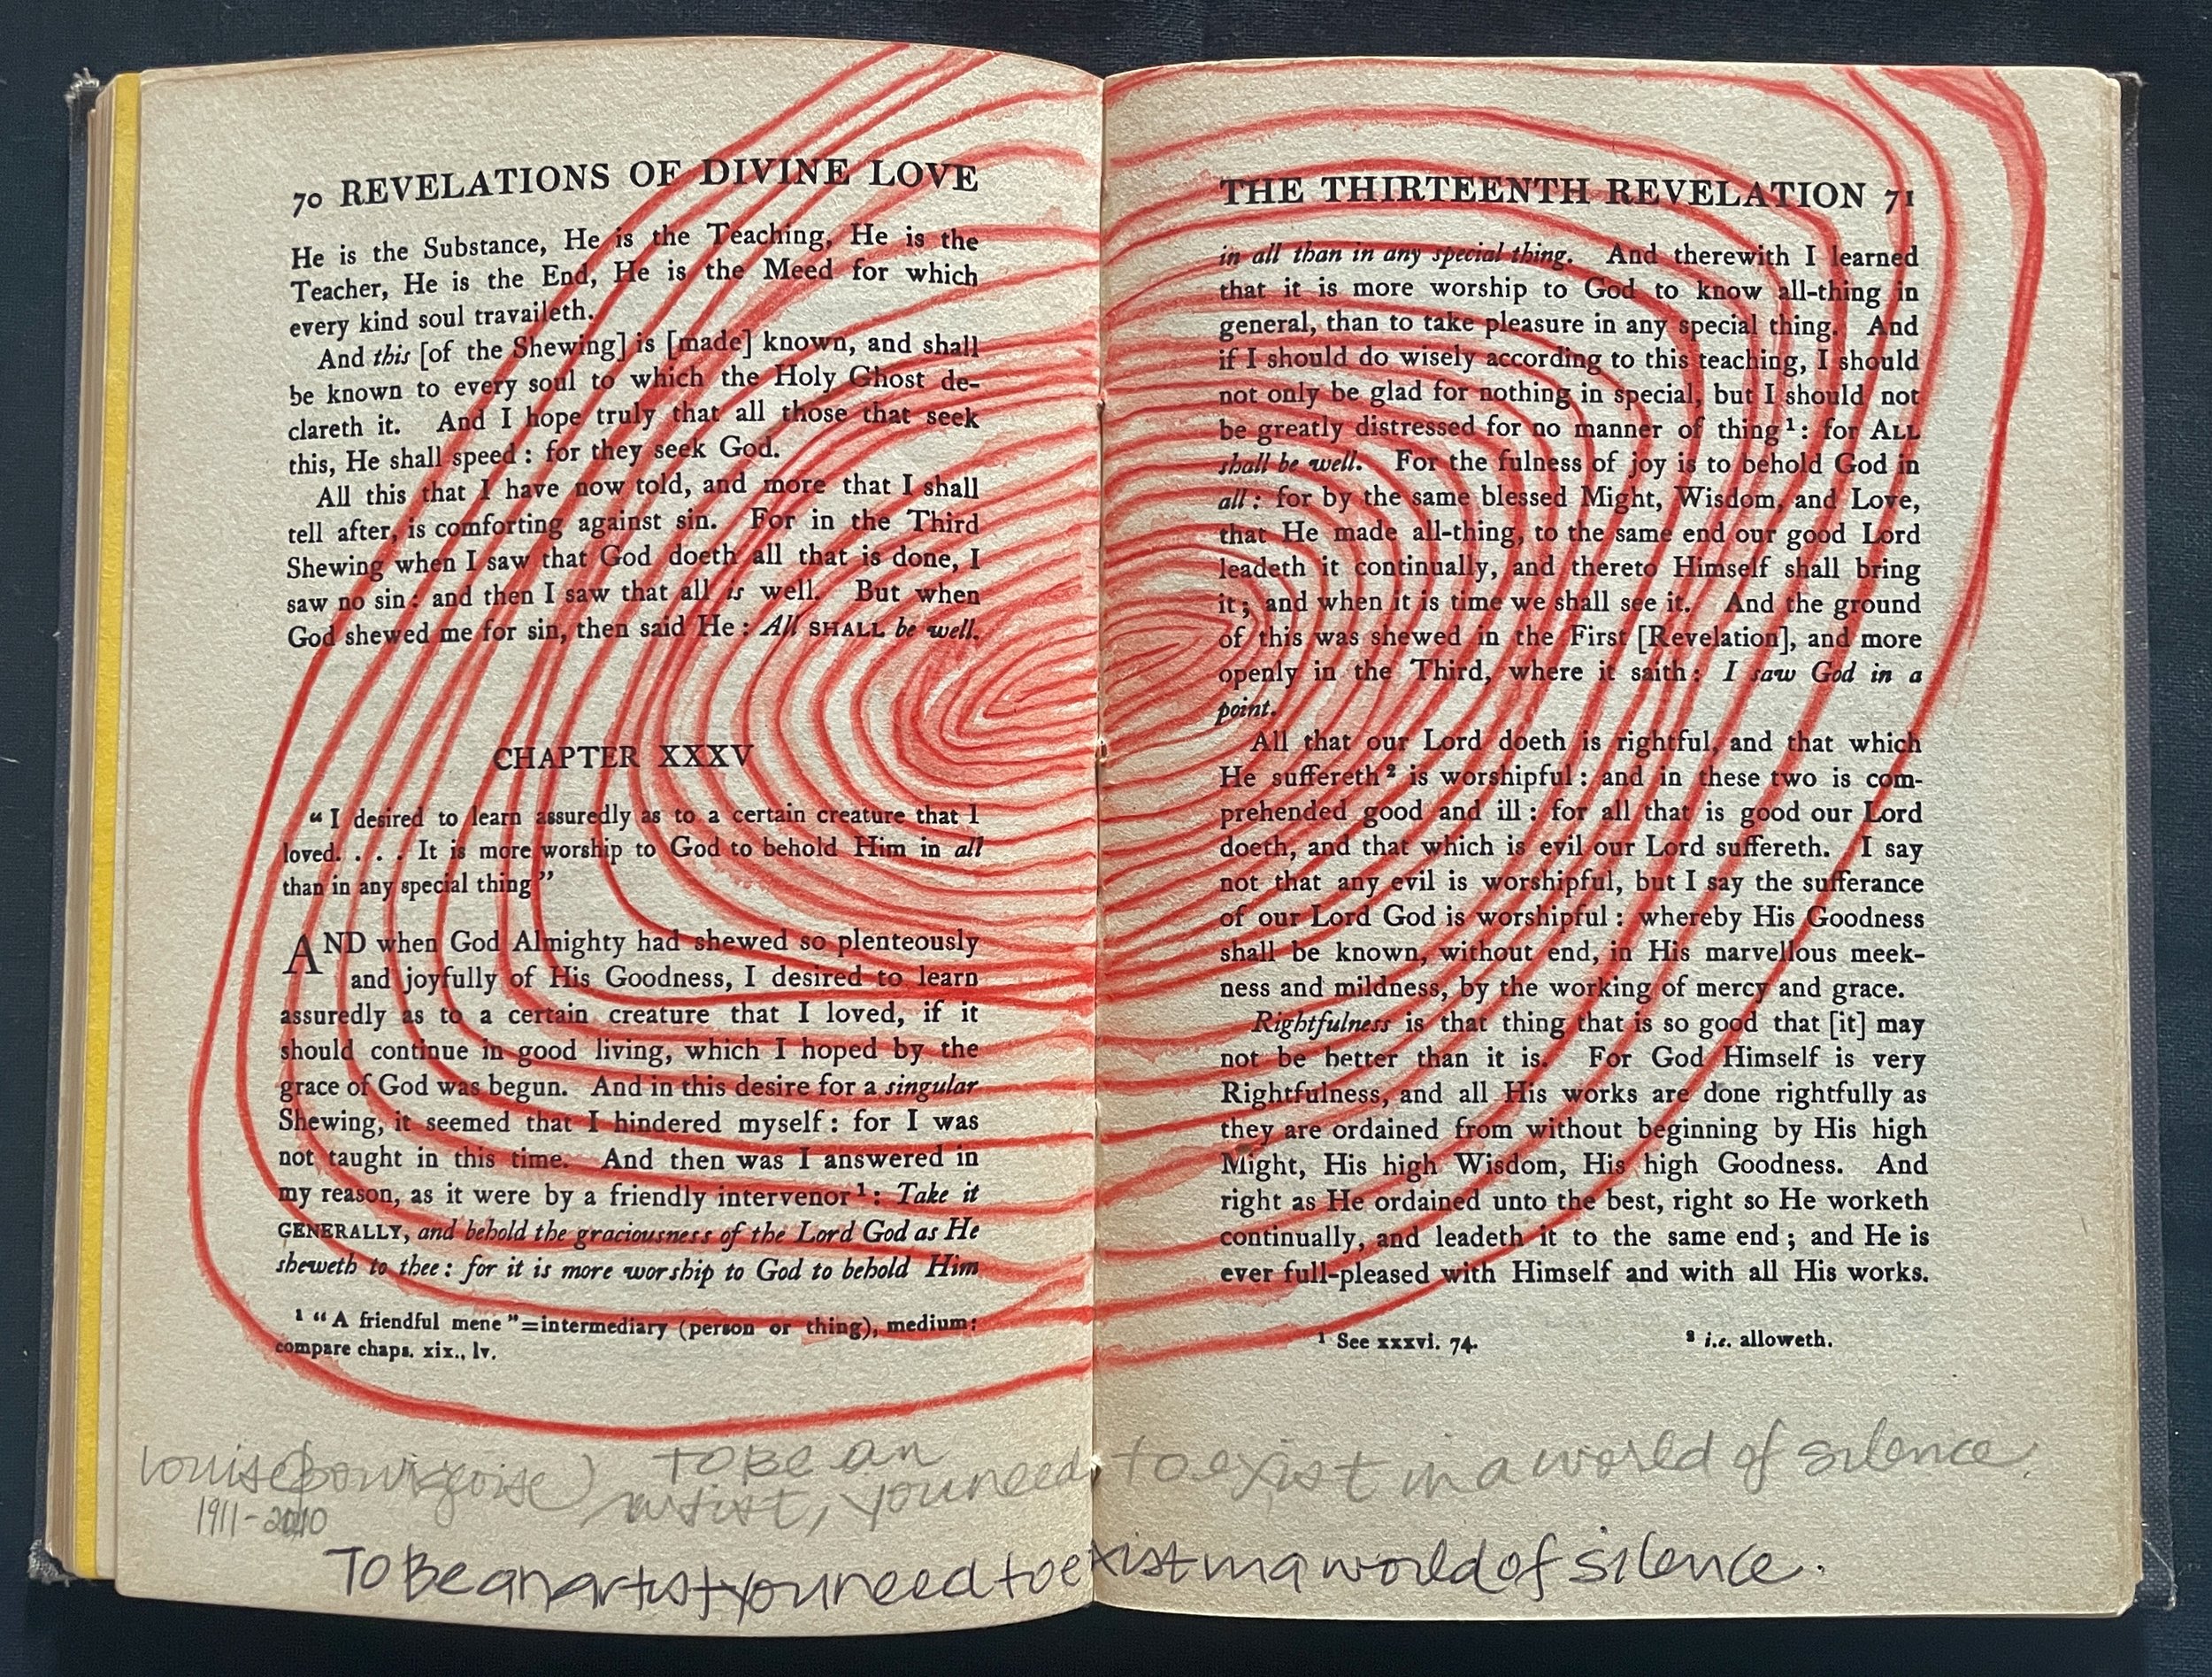 70 REVELATIONS OF DIVINE LOVE
He is the Substance, He is the Teaching, He is the
Teacher, He is the End, He is the Meed for which
every kind soul travaileth.
And this [of the Shewing] is [made] known, and shall
be known to every soul to which the Holy Ghost de-
clareth it. And I hope truly that all those that seek
this, He shall speed : for they seek God.
All this that I have now told, and more that I shall
tell after, is comforting against sin. For in the Third
Shewing when I saw that God doeth all that is done, I
saw no sin : and then I saw that all is well. But when
God shewed me for sin, then said He : All SHALL be well.
CHAPTER XXXV
“ I desired to learn assuredly as to a certain creature that I
loved. . . . It is more worship to God to behold Him in all
than in any special thing”
AND when God Almighty had shewed so plenteously
and joyfully of His Goodness, I desired to learn
assuredly as to a certain creature that I loved, if it
should continue in good living, which I hoped by the
grace of God was begun. And in this desire for a singular
Shewing, it seemed that I hindered myself : for I was
not taught in this time. And then was I answered in
my reason, as it were by a friendly intervenor¹ : Take it
GENERALLY, and behold the graciousness of the Lord God as He
sheweth to thee : for it is more worship to God to behold Him
¹ “ A friendful mene ”=intermediary (person or thing), medium:
compare chaps. xix., lv.
THE THIRTEENTH REVELATION 71
in all than in any special thing. And therewith I learned
that it is more worship to God to know all-thing in
general, than to take pleasure in any special thing. And
if I should do wisely according to this teaching, I should
not only be glad for nothing in special, but I should not
be greatly distressed for no manner of thing¹ : for ALL
shall be well. For the fulness of joy is to behold God in
all : for by the same blessed Might, Wisdom, and Love,
that He made all-thing, to the same end our good Lord
leadeth it continually, and thereto Himself shall bring
it ; and when it is time we shall see it. And the ground
of this was shewed in the First [Revelation], and more
openly in the Third, where it saith : I saw God in a
point.
All that our Lord doeth is rightful, and that which
He suffereth² is worshipful : and in these two is com-
prehended good and ill : for all that is good our Lord
doeth, and that which is evil our Lord suffereth. I say
not that any evil is worshipful, but I say the sufferance
of our Lord God is worshipful : whereby His Goodness
shall be known, without end, in His marvellous meek-
ness and mildness, by the working of mercy and grace.
Rightfulness is that thing that is so good that [it] may
not be better than it is. For God Himself is very
Rightfulness, and all His works are done rightfully as
they are ordained from without beginning by His high
Might, His high Wisdom, His high Goodness. And
right as He ordained unto the best, right so He worketh
continually, and leadeth it to the same end ; and He is
ever full-pleased with Himself and with all His works.
¹ See xxxvi. 74. ² i.e. alloweth.
Louise Bourgeoise) TO BE an
artist, you need to exist in a world of silence.
1911-2010
To Be an artist you need to exist in a world of silence.